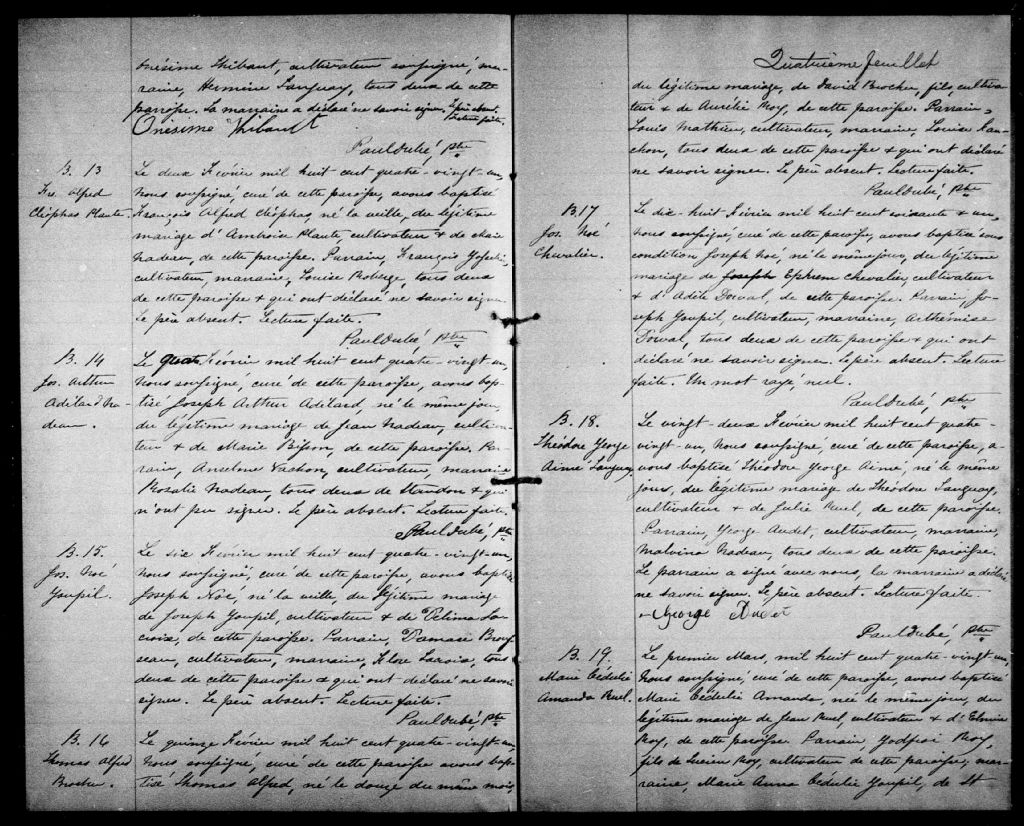 Onésime Thibaut, cultivateur soussigné, mar-
raine, Hermine Tanguay, tous deux de cette
paroisse. La marraine a déclaré ne savoir signer. Le père absent.
Lecture faite.
Onésime Thibault
Paul Dubé, Ptre
B. 13
Frs. Alfred
Cléophas Plante.
Le deux Février mil huit cent quatre-vingt-un,
Nous soussigné, curé de cette paroisse, avons baptisé
François Alfred Cléophas, né la veille, du légitime
mariage d'Ambroise Plante, cultivateur & de Marie
Nadeau, de cette paroisse. Parrain, François
cultivateur, marraine, Louise Roberge, tous deux
de cette paroisse & qui ont déclaré ne savoir signer.
Le père absent. Lecture faite.
Paul Dubé, Ptre
B. 14
Jos. Arthur
Adélard Na-
deau.
Le quatre Février mil huit cent quatre-vingt un,
Nous soussigné, curé de cette paroisse, avons bap-
tisé Joseph Arthur Adélard, né le même jour,
du légitime mariage de Jean Nadeau, cultiva-
teur & de Marie Bisson, de cette paroisse. Par-
rain, Anselme Vachon, cultivateur, marraine
Rosalie Nadeau, tous deux de Standon & qui
n'ont pu signer. Le père absent. Lecture faite.
Paul Dubé, Ptre
B. 15.
Jos. Noé
Goupil.
Le six Février mil huit cent quatre-vingt-un,
Nous soussigné, curé de cette paroisse, avons baptisé
Joseph Noé, né la veille du légitime mariage
de Joseph Goupil, cultivateur & de Délima La-
croix, de cette paroisse. Parrain, Damase Brous-
seau, cultivateur, marraine, Flore Lacroix, tous
deux de cette paroisse & qui ont déclaré ne savoir
signer. Le père absent. Lecture faite.
Paul Dubé, Ptre
B. 16
Thomas Alfred
Brochu.
Le quinze Février mil huit cent quatre-vingt-un,
Nous soussigné, curé de cette paroisse avons bap-
tisé Thomas Alfred, né le douze du même mois,
Quatrième feuillet
du légitime mariage, de David Brochu, fils, cultiva-
teur & de Aurélie Roy, de cette paroisse. Parrain,
Louis Mathieu, cultivateur, marraine, Louise
tous deux de cette paroisse & qui ont déclaré
ne savoir signer. Le père absent. Lecture faite.
Paul Dubé, Ptre
B. 17
Jos. Noé
Chevalier.
Le dix-huit Février mil huit cent soixante & un,
Nous soussigné, curé de cette paroisse, avons baptisé sous
condition Joseph Noé, né le même jour, du légitime
mariage de Joseph Ephrem Chevalier, cultivateur
& d'Adèle Dorval, de cette paroisse. Parrain, Jo-
seph Goupil, cultivateur, marraine, Arthémise
Dorval, tous deux de cette paroisse & qui ont
déclaré ne savoir signer. Le père absent. Lecture
faite. Un mot rayé nul.
Paul Dubé, Ptre
B. 18.
Théodore George
Aimé Tanguay
Le vingt-deux Février mil huit cent quatre-
vingt-un, Nous soussigné, curé de cette paroisse, a-
vons baptisé Théodore George Aimé, né le même
jour, du légitime mariage de Théodore Tanguay,
cultivateur & de Julie Ruel, de cette paroisse.
Parrain, George Audet, cultivateur, marraine,
Malvina Nadeau, tous deux de cette paroisse.
Le parrain a signé avec nous, la marraine a déclaré
ne savoir signer. Le père absent. Lecture faite
George Audet
Paul Dubé, Ptre
B. 19.
Marie Cédulie
Amanda Ruel.
Le premier Mars, mil huit cent quatre-vingt-un,
Nous soussigné, curé de cette paroisse, avons baptisé
Marie Cédulie Amanda, née le même jour, du
légitime mariage de Jean Ruel, cultivateur & d'Elmire
Roy, de cette paroisse. Parrain, Godfroi Roy,
fils de Lucien Roy, cultivateur de cette paroisse, mar-
raine, Marie Anna Cédulie Goupil, de St